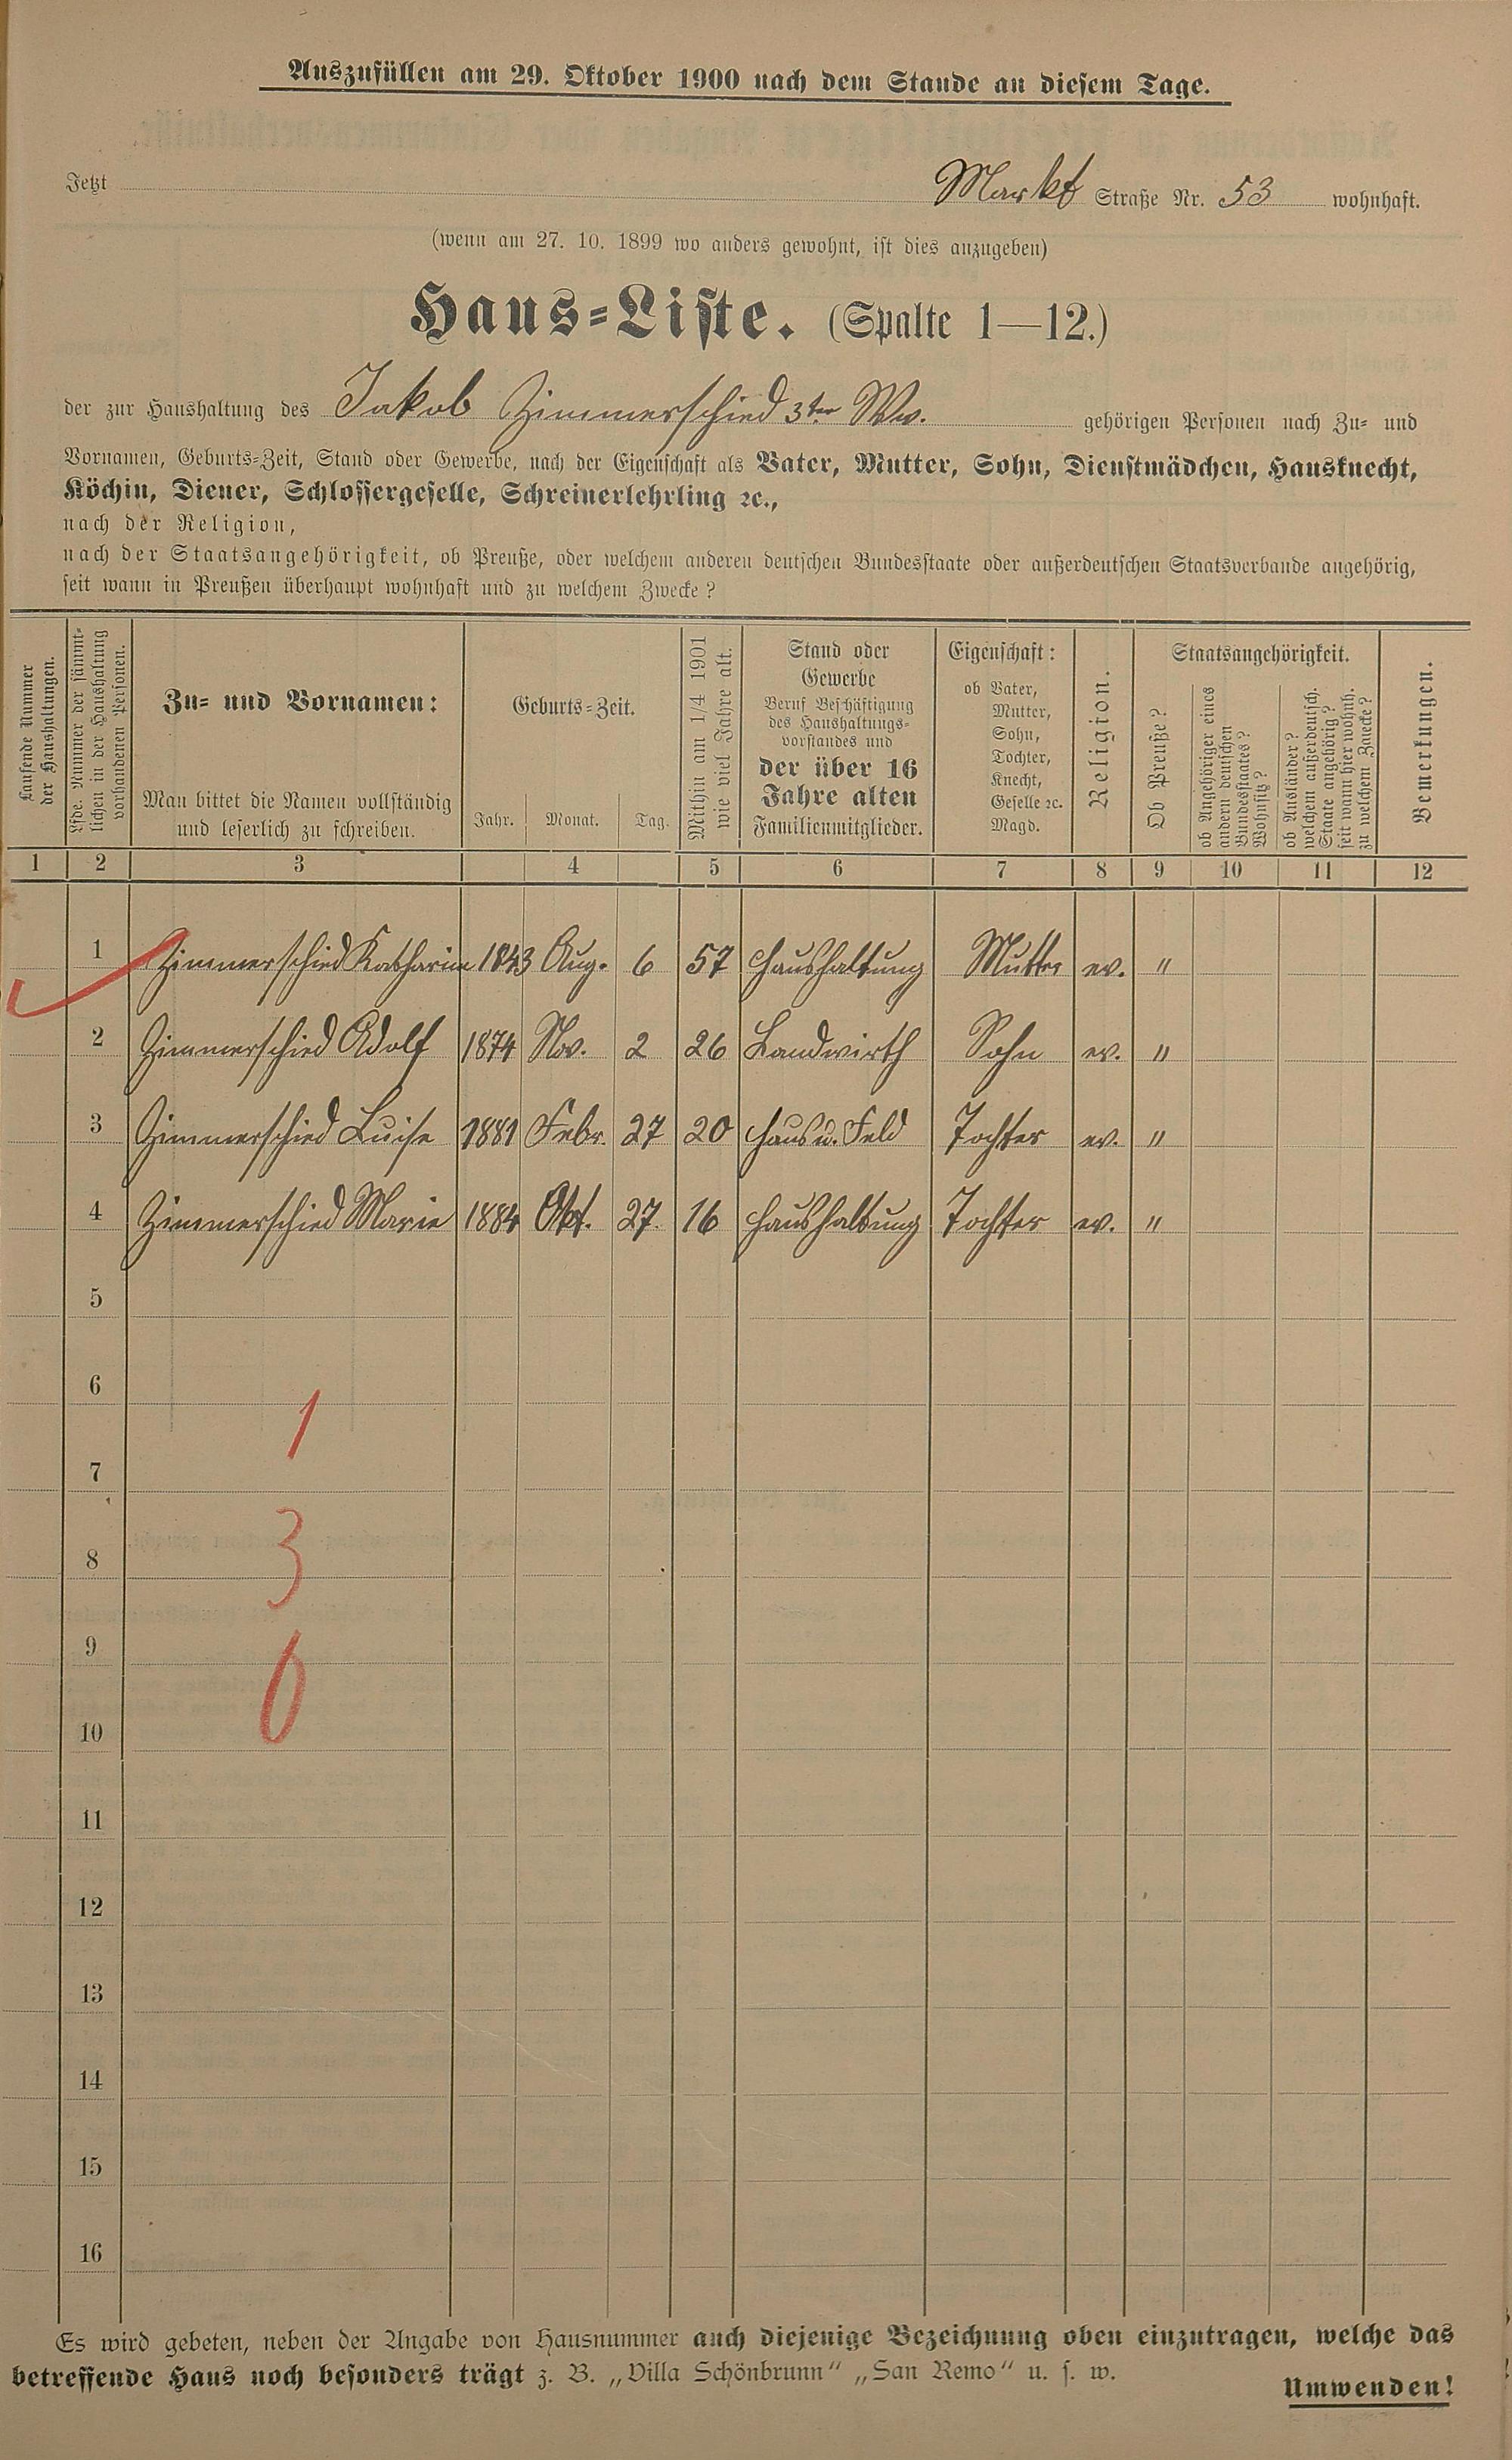 Auszufüllen am 29. Oktober 1900 nach dem Stande an diesem Tage.
Jetzt Markt Straße Nr. 53 wohnhaft.
(wenn am 27. 10. 1899 wo anders gewohnt, ist dies anzugeben)
Haus=Liste. (Spalte 1—12.)
der zur Haushaltung des Jakob Zimmerschied 3ter Ww. gehörigen Personen nach Zu= und
Vornamen, Geburts=Zeit, Stand oder Gewerbe, nach der Eigenschaft als Vater, Mutter, Sohn, Dienstmädchen, Hausknecht,
Köchin, Diener, Schlossergeselle, Schreinerlehrling ꝛc.,
nach der Religion,
nach der Staatsangehörigkeit, ob Preuße, oder welchem anderen deutschen Bundesstaate oder außerdeutschen Staatsverbande angehörig,
seit wann in Preußen überhaupt wohnhaft und zu welchem Zwecke?
Laufende Nummer
der Haushaltungen.
Lfde. Nummer der sämmt=
lichen in der Haushaltung
vorhandenen Personen.
Zu= und Vornamen:
Man bittet die Namen vollständig
und leserlich zu schreiben.
Geburts=Zeit.
Jahr. Monat. Tag.
Mithin am 1/4 1901
wie viel Jahre alt.
Stand oder
Gewerbe
Beruf Beschäftigung
des Haushaltungs=
vorstandes und
der über 16
Jahre alten
Familienmitglieder.
Eigenschaft:
ob Vater,
Mutter,
Sohn,
Tochter,
Knecht,
Geselle ꝛc.
Magd.
Religion.
Staatsangehörigkeit.
Ob Preuße?
ob Angehöriger eines
andern deutschen
Bundesstaates?
Wohnsitz?
ob Ausländer?
welchem außerdeutsch.
Staate angehörig?
seit wann hier wohnh.
zu welchem Zwecke?
Bemerkungen.
1 2 3 4 5 6 7 8 9 10 11 12
1 Zimmerschied Katharine 1843 Aug. 6 57 Haushaltung Mutter ev. "
2 Zimmerschied Adolf 1874 Nov. 2 26 Landwirth Sohn ev. "
3 Zimmerschied Luise 1881 Febr. 27 20 Haus u. Feld Tochter ev. "
4 Zimmerschied Marie 1884 Okt. 27. 16 Haushaltung Tochter ev. "
5
6
1
7
8 3
9
0
10
11
12
13
14
15
16
Es wird gebeten, neben der Angabe von Hausnummer auch diejenige Bezeichnung oben einzutragen, welche das
betreffende Haus noch besonders trägt z. B. „Villa Schönbrunn“ „San Remo“ u. s. w.
Umwenden!